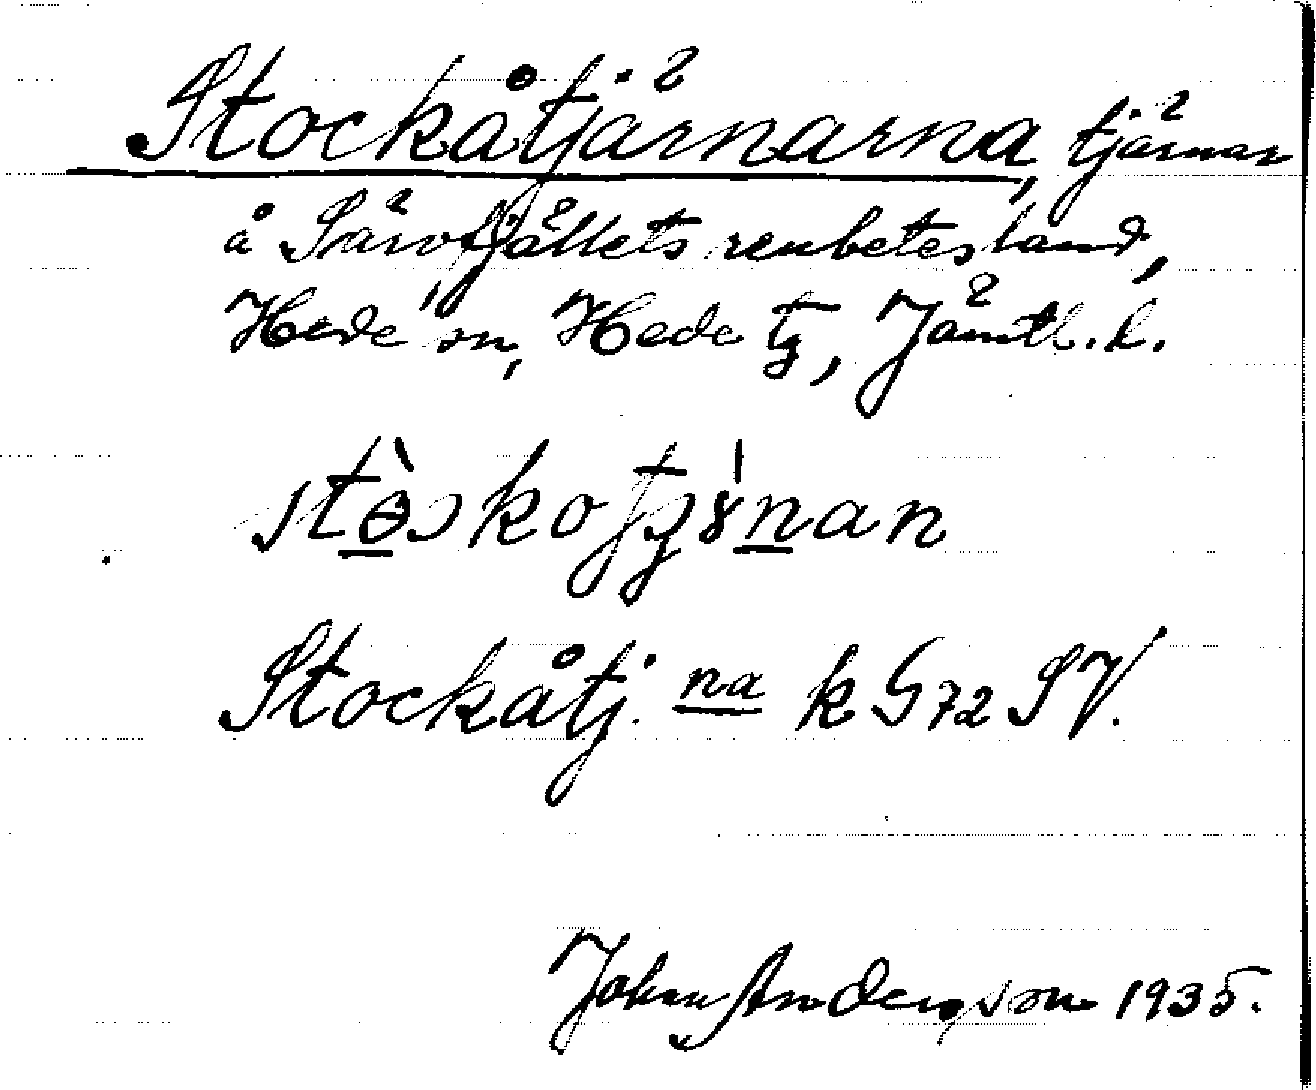 Stockåtjärnarna, tjärnar
å Särvfjällets renbetesland,
Hede sn, Hede tg, Jämtl. l.
Stockåtj. na k G72 SV.
Johan Andersson 1935.